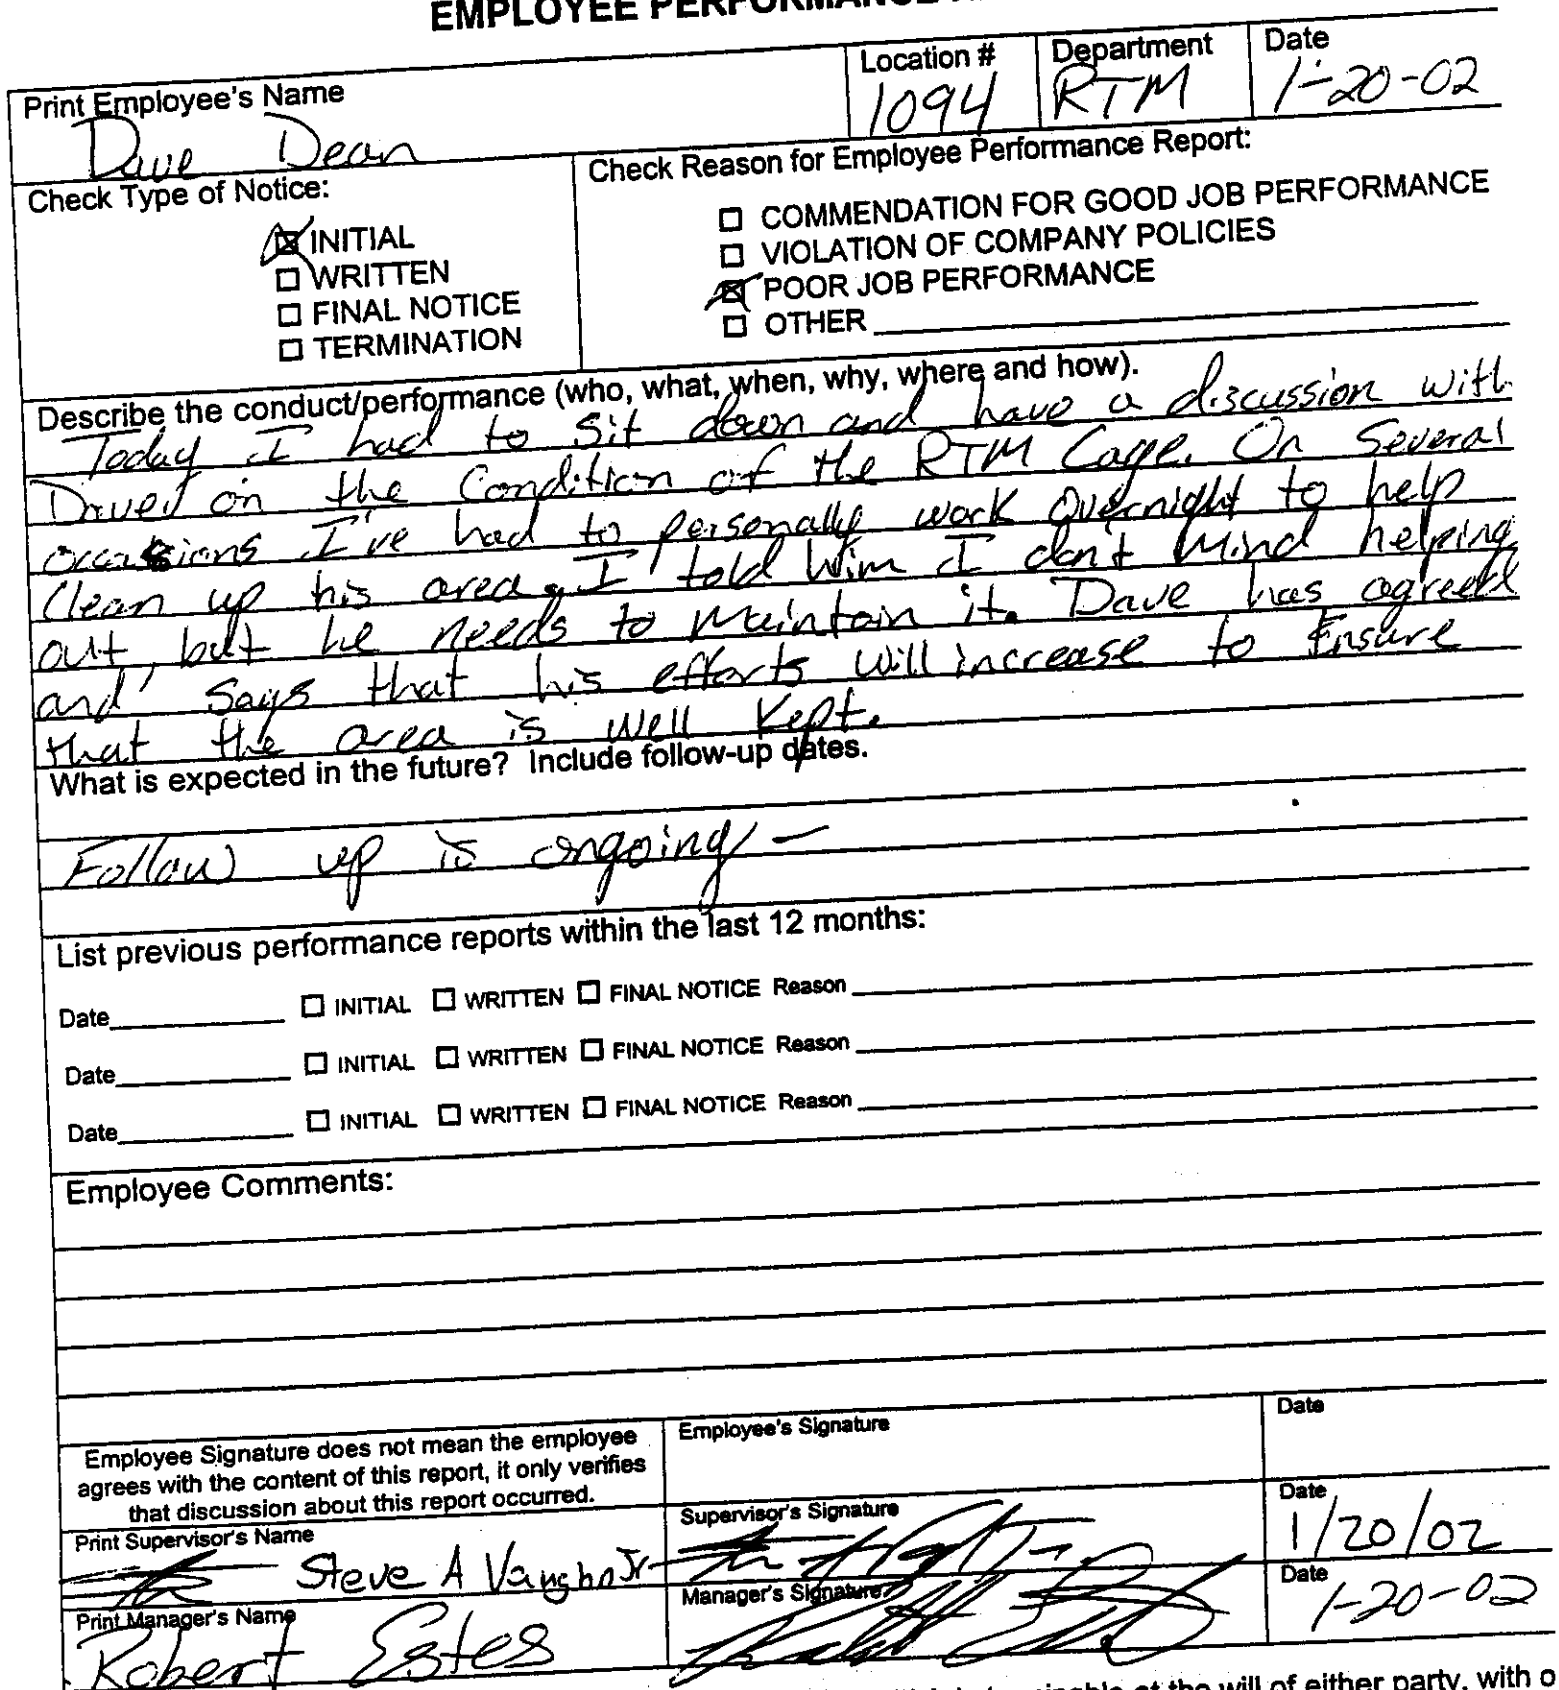 EMPLOYEE PERFORMANCE
Print Employee's Name
Location #
Department
Date
Dave Dean
1094
RTM
1-20-02
Check Type of Notice:
Check Reason for Employee Performance Report:
INITIAL
WRITTEN
FINAL NOTICE
TERMINATION
COMMENDATION FOR GOOD JOB PERFORMANCE
VIOLATION OF COMPANY POLICIES
POOR JOB PERFORMANCE
OTHER
Describe the conduct/performance (who, what, when, why, where and how).
Today I had to Sit down and have a discussion with
on the Condition of the RTM Cage. On Several
occassions I've had to personally work overnight to help
Clean up his area. I told him I don't mind helping
out, but he needs to maintain it. Dave has agreed
and says that his efforts will increase to Ensure
that the area is well kept.
What is expected in the future? Include follow-up dates.
Follow up is ongoing —
List previous performance reports within the last 12 months:
Date ☐ INITIAL ☐ WRITTEN ☐ FINAL NOTICE Reason
Date ☐ INITIAL ☐ WRITTEN ☐ FINAL NOTICE Reason
Date ☐ INITIAL ☐ WRITTEN ☐ FINAL NOTICE Reason
Employee Comments:
Employee Signature does not mean the employee
agrees with the content of this report, it only verifies
that discussion about this report occurred.
Employee's Signature
Date
Print Supervisor's Name
Steve A Vaughn Jr
Supervisor's Signature
Date
1/20/02
Print Manager's Name
Robert Estes
Manager's Signature
Date
1-20-02
at the will of either party, with o